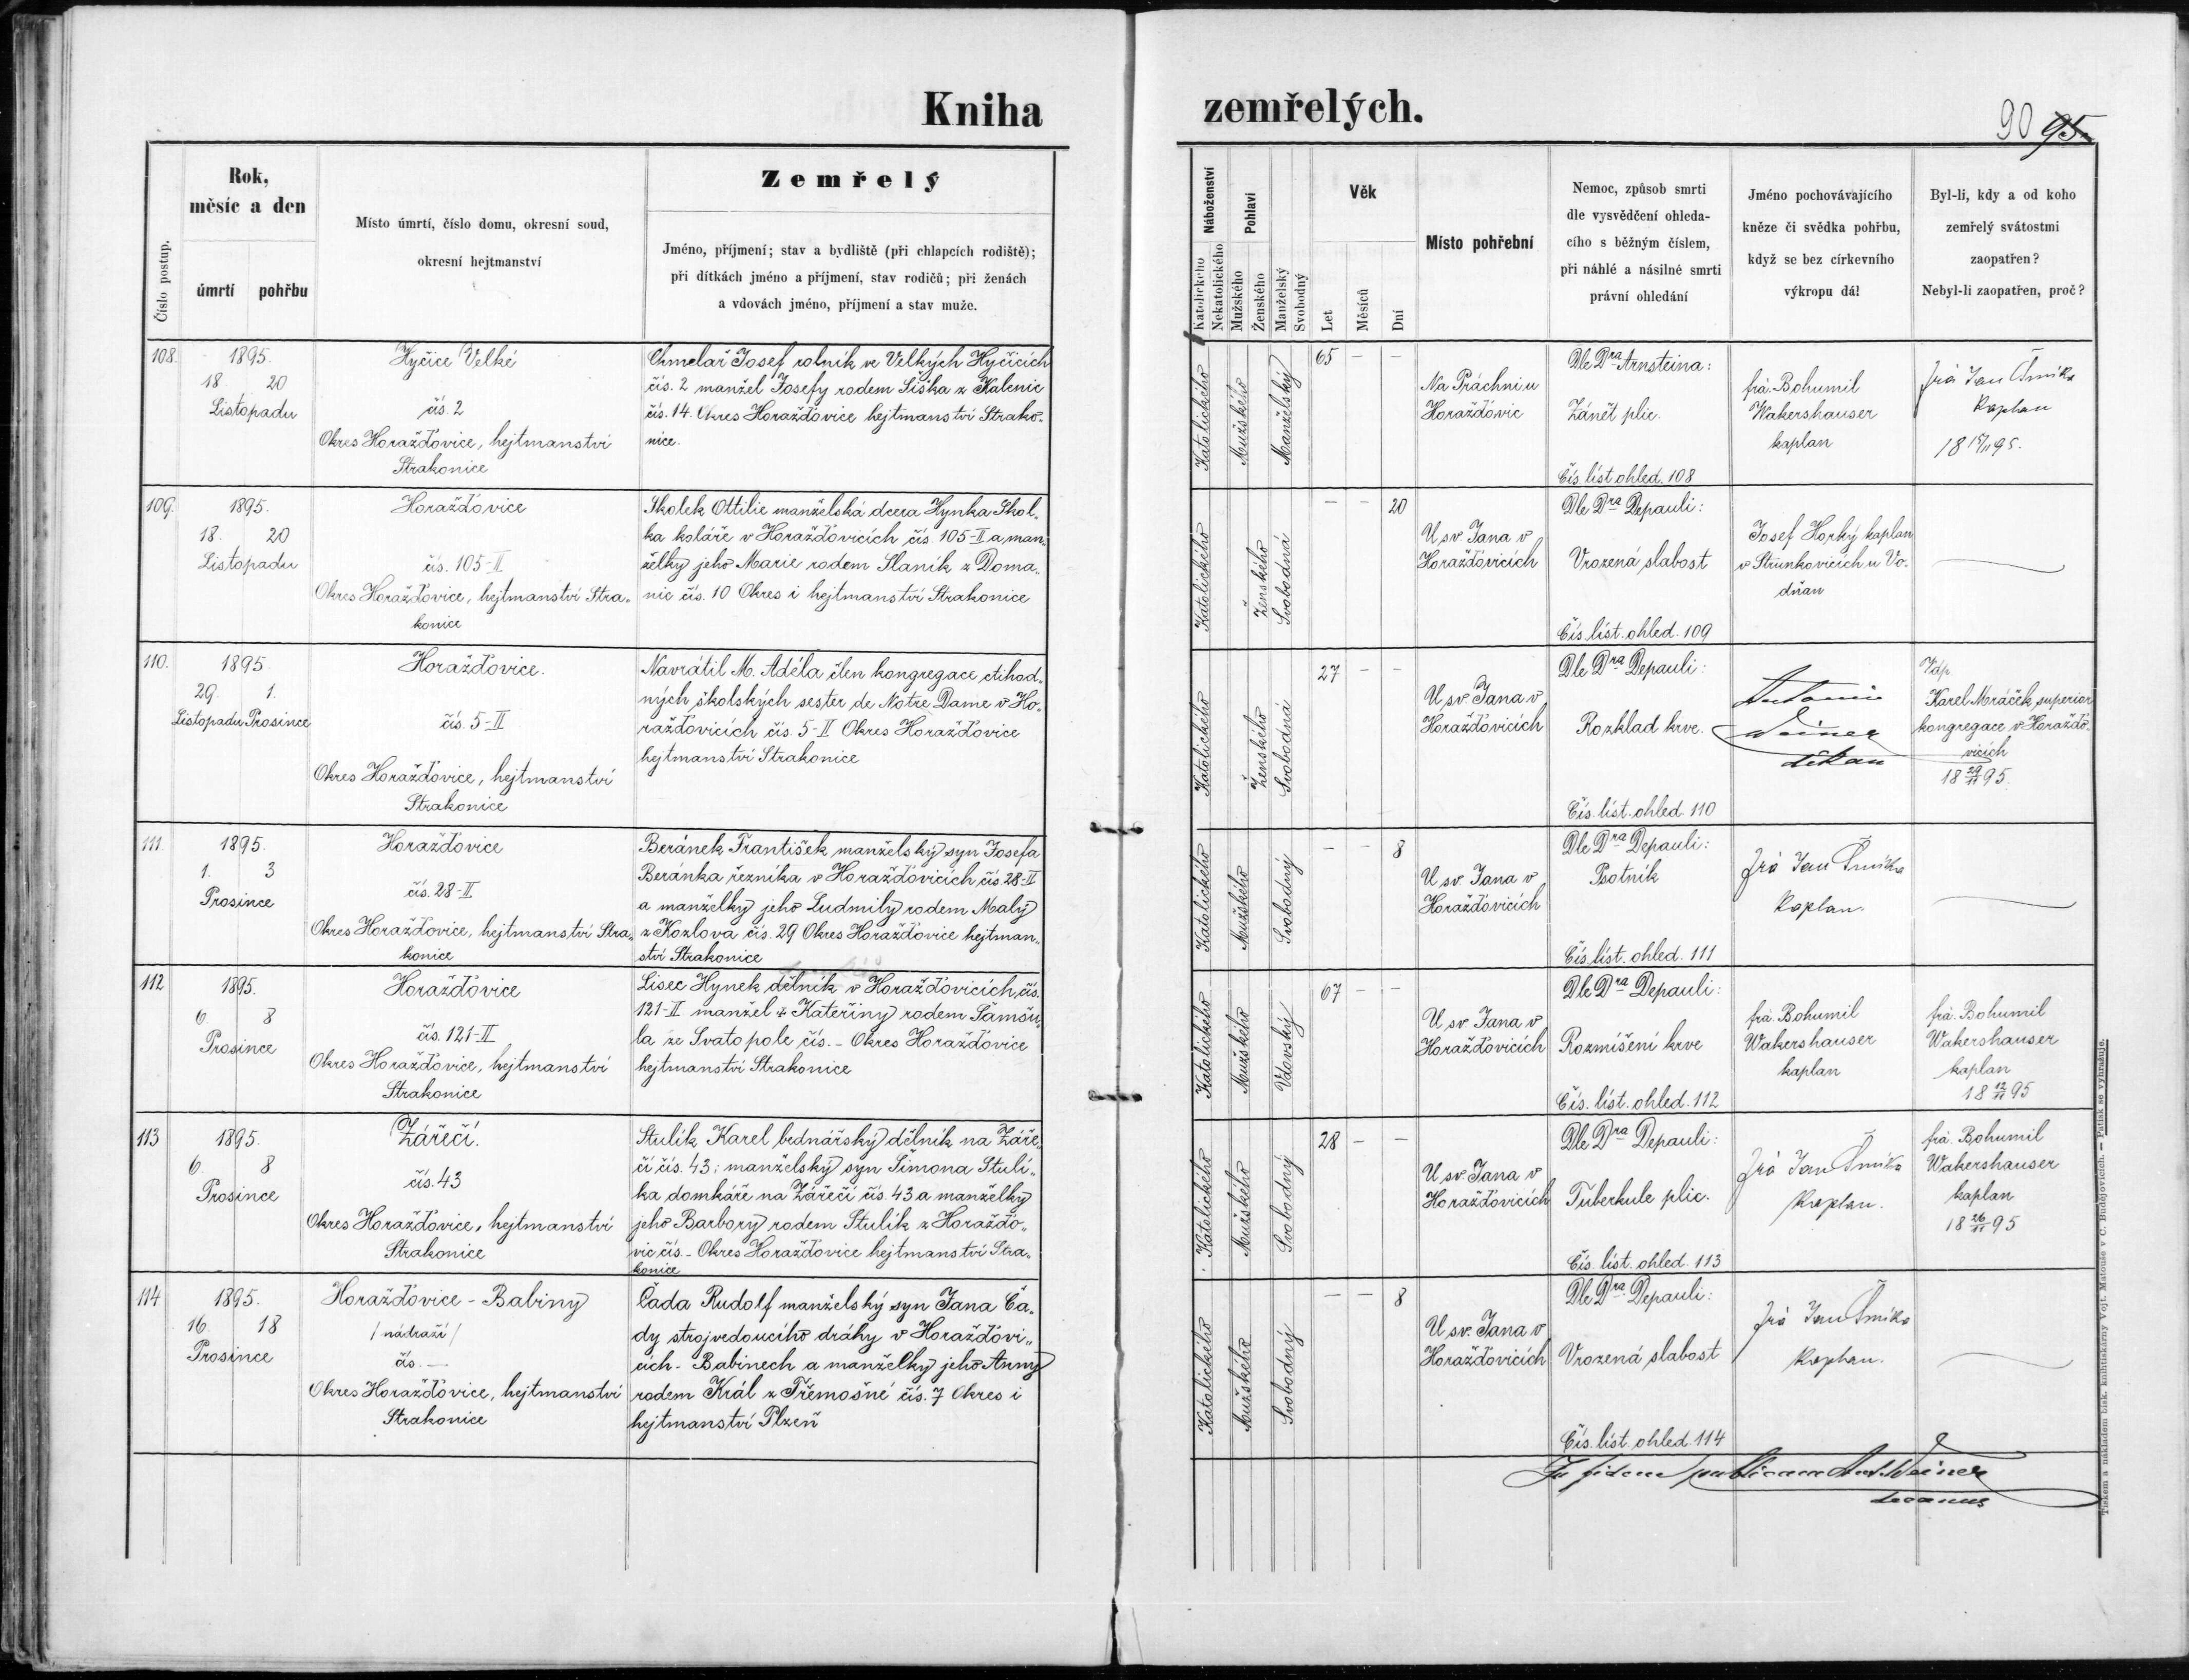 Kniha
zemřelých.
90 95
Číslo postup.
Rok,
měsíc a den
úmrtí pohřbu
Místo úmrtí, číslo domu, okresní soud,
okresní hejtmanství
Zemřelý
Jméno, příjmení; stav a bydliště (při chlapcích rodiště);
při dítkách jméno a příjmení, stav rodičů; při ženách
a vdovách jméno, příjmení a stav muže.
Náboženství
Katolického
Nekatolického
Pohlaví
Mužského
Ženského
Manželský
Svobodný
Věk
Let
Měsíců
Dní
Místo pohřební
Nemoc, způsob smrti
dle vysvědčení ohleda-
cího s běžným číslem,
při náhlé a násilné smrti
právní ohledání
Jméno pochovávajícího
kněze či svědka pohřbu,
když se bez církevního
výkropu dál
Byl-li, kdy a od koho
zemřelý svátostmi
zaopatřen?
Nebyl-li zaopatřen, proč?
108.
1895.
18 20
Listopadu
Hyčice Velké
čís. 2
Okres Horažďovice, hejtmanství
Strakonice
Chmelař Josef rolník ve Velkých Hyčicích
čís. 2 manžel Josefy rodem Šiška z Kalenic
čís. 14. Okres Horažďovice hejtmanství Strako-
nice.
Katolického
Mužského
Manželský
65 — —
Na Práchni u
Horažďovic
Dle Dra Arnsteina:
Zánět plic.
Čís. líst ohled. 108
frá. Bohumil
Wakershauser
kaplan
frá Jan Šmíka
Kaplan
18 15/11 95.
109.
1895.
18. 20
Listopadu
Horažďovice
čís. 105-II
Okres Horažďovice, hejtmanství Stra-
konice
Skolek Ottilie manželská dcera Hynka Skol-
ka koláře v Horažďovicích čís 105-II a man-
želky jeho Marie rodem Slaník z Doma-
nic čís. 10 Okres i hejtmanství Strakonice
Katolického
Ženského
Svobodná
— — 20
U sv Jana v
Horažďovicích
Dle Dra Depauli:
Vrozená slabost
Čís líst. ohled. 109
Josef Horký kaplan
v Strunkovicích u Vo-
dňan
—
110.
1895
29. 1.
Listopadu Prosince
Horažďovice.
čís. 5-II
Okres Horažďovice, hejtmanství
Strakonice
Navrátil M. Adéla člen kongregace ctihod-
ných školských sester de Notre Dame v Ho-
ražďovicích čís. 5-II Okres Horažďovice
hejtmanství Strakonice
Katolického
Ženského
Svobodná
27 — —
U sv. Jana v
Horažďovicích
Dle Dra Depauli:
Rozklad krve.
Čís. líst. ohled 110
Antonín
Weiner
děkan
Karel Moráček superior
kongregace v Horažďo-
vicích
18 29/11 95.
111.
1895.
1. 3
Prosince
Horažďovice
čís. 28-II
Okres Horažďovice, hejtmanství Stra-
konice
Beránek František manželský syn Josefa
Beránka řezníka v Horažďovicích čís. 28-II
a manželky jeho Ludmily rodem Malý
z Kozlova čís. 29 Okres Horažďovice hejtman-
ství Strakonice
Katolického
Mužského
Svobodný
— — 8
U sv. Jana v
Horažďovicích
Dle Dra Depauli:
Psotník
Čís. líst. ohled. 111
frá Jan Šmíka
Kaplan.
—
112
1895.
6. 8
Prosince
Horažďovice
čís. 121-II
Okres Horažďovice, hejtmanství
Strakonice
Lisec Hynek dělník v Horažďovicích čís.
121-II manžel † Kateřiny rodem Šamšu-
la ze Svatopole čís. - Okres Horažďovice
hejtmanství Strakonice
Katolického
Mužského
Vdovský
67 — —
U sv. Jana v
Horažďovicích
Dle Dra Depauli:
Rozmíšení krve
Čís. líst. ohled. 112
frá. Bohumil
Wakershauser
kaplan
frá. Bohumil
Wakershauser
kaplan
18 12/11 95
113
1895.
6. 8
Prosince
Zářečí.
čís. 43
Okres Horažďovice, hejtmanství
Strakonice
Stulík Karel bednářský dělník na Záře-
čí čís. 43; manželský syn Šimona Stulí-
ka domkáře na Zářečí čís. 43 a manželky
jeho Barbory rodem Stulík z Horažďo-
vic čís. - Okres Horažďovice hejtmanství Stra-
konice
Katolického
Mužského
Svobodný
28 — —
U sv. Jana v
Horažďovicích
Dle Dra Depauli:
Tuberkule plic.
Čís. líst. ohled. 113
frá Jan Šmíka
Kaplan.
frá. Bohumil
Wakershauser
kaplan
18 26/11 95
114
1895.
16. 18
Prosince
Horažďovice - Babiny
/nádraží/
čís. —
Okres Horažďovice, hejtmanství
Strakonice
Čada Rudolf manželský syn Jana Ča-
dy strojvedoucího dráhy v Horažďovi-
cích - Babinech a manželky jeho Anny
rodem Král z Třemošné čís. 7 Okres i
hejtmanství Plzeň
Katolického
Mužského
Svobodný
— — 8
U sv. Jana v
Horažďovicích
Dle Dra Depauli:
Vrozená slabost
Čís. líst. ohled. 114
frá Jan Šmíka
Kaplan.
—
In fidem publicam Ant. Weiner
decanus
Tiskem a nákladem bisk. knihtiskárny Vojt. Matouše v Č. Budějovicích. — Patisk se vyhražuje.